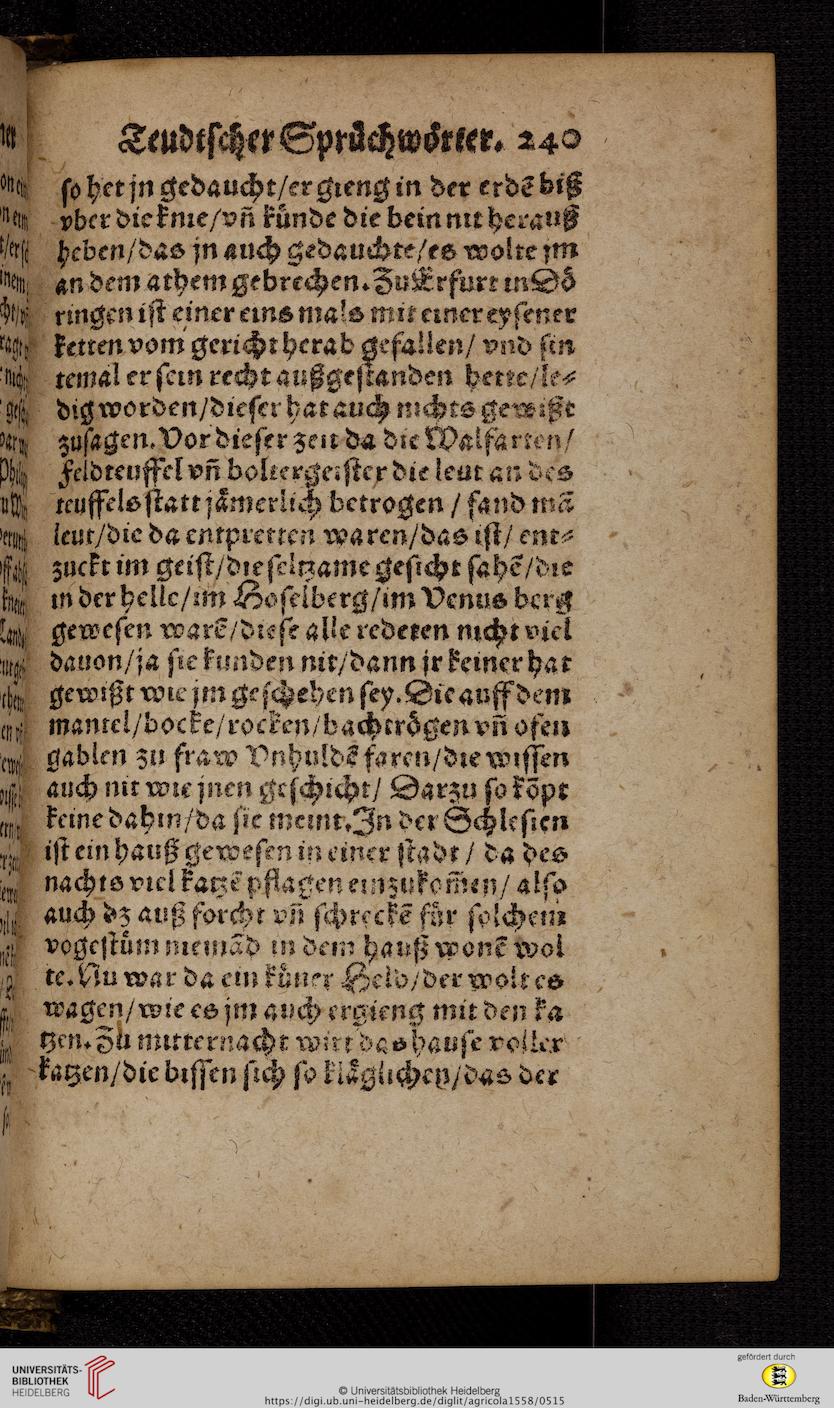 Teudtscher Sprüchwörter. 240
so het jn gedaucht/er gieng in der erdē biß
vber die knie/vñ künde die bein nit herauß
heben/das jn auch gedauchte/es wolte jm
an dem athem gebrechen. Zu Erfurt in Dö
ringen ist einer eins mals mit einer eysener
ketten vom gericht herab gefallen/ vnd sin
temal er sein recht außgestanden hette/le⸗
dig worden/dieser hat auch nichts gewißt
zusagen. Vor dieser zeit da die Walfarten/
Feldteuffel vñ boltergeister die leut an des
teuffels statt jämerlich betrogen / fand mā
leut/die da entpretten waren/das ist/ ent⸗
zuckt im geist/die seltzame gesicht sahē/die
in der helle/im Hoselberg/im Venus berg
gewesen warē/diese alle redeten nicht viel
dauon/ja sie kunden nit/dann jr keiner hat
gewißt wie jm geschehen sey. Die auff dem
mantel/bocke/rocken/bachtrögen vñ ofen
gablen zu fraw Vnhuldē faren/die wissen
auch nit wie jnen geschicht/ Darzu so kōpt
keine dahin/da sie meint. In der Schlesien
ist ein hauß gewesen in einer stadt / da des
nachts viel katzē pflagen einzukom̄en/ also
auch dz auß forcht vñ schreckē für solchem
vogestüm niemād in dem hauß wonē wol
te. Nu war da ein küner Held/der wolt es
wagen/wie es jm auch ergieng mit den ka
tzen. Zu mitternacht wirt das hause voller
katzen/die bissen sich so kläglichen/das der
UNIVERSITÄTS-
BIBLIOTHEK
HEIDELBERG
© Universitätsbibliothek Heidelberg
https://digi.ub.uni-heidelberg.de/diglit/agricola1558/0515
gefördert durch
Baden-Württemberg